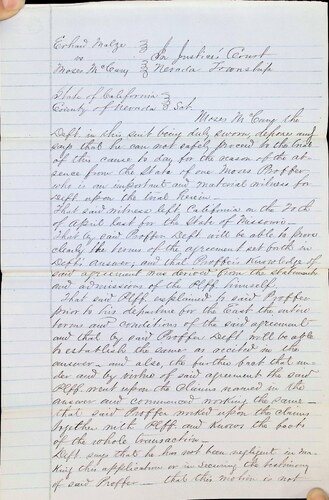 Erhard Molze }
vs } In Justice's Court
Moses McCuny } Nevada Township
State of California }
County of Nevada } Sct.
Moses McCuny the
Deft. in this suit being duly sworn, deposes and
says that he can not safely proceed to the trial
of this cause to day for the reason of the ab-
sence from the State of one Moses Proffer
who is an important and material witness for
Deft upon the trial herein.
That said witness left California on the
of April last for the State of Missouri.
That by said Proffer Deft will be able to prove
clearly the terms of the agreement set forth in
Defts answer, and that Proffer's knowledge of
said agreement was derived from the statements
and admissions of the Plff himself.
That said Plff explained to said Proffer
prior to his departure for the East the entire
terms and conditions of the said agreement
and that by said Proffer Deft will be able
to establish the same as recited in the
answer — and also, the further fact that un-
der and by virtue of said agreement the said
Plff went upon the claims named in the
answer and commenced working the same —
that said Proffer worked upon the claims
together with Plff and knows the facts
of the whole transaction —
Deft says that he has not been negligent in ma-
king this application or in securing the testimony
of said Proffer — that this motion is not